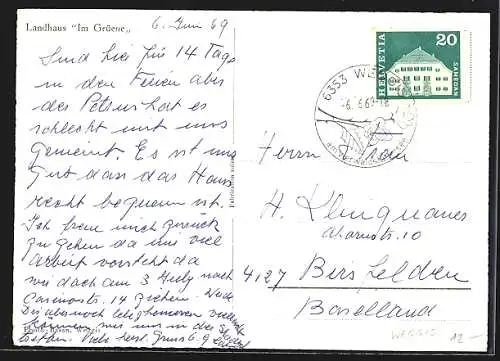 Landhaus "Im Grüene"
6. Juni 69
Sind hier für 14 Tage
in den Ferien aber
der Petrus hat es
schlecht mit uns
gemeint. Es ist nur
gut dass das Haus
recht bequem ist.
Ich freue mich zurück
zu gehen da uns viel
Arbeit vorsteht da
wir doch am 3 July nach
14 ziehen. Werde
Dir aber noch telephonieren
uns in der
HELVETIA
20
SAMEDAN
6353 WEGGIS
-6. 6.69-18
Herrn
H. Klingnauer
Ahornstr. 10
4127 Birsfelden
Baselland
WEGGIS 12.-